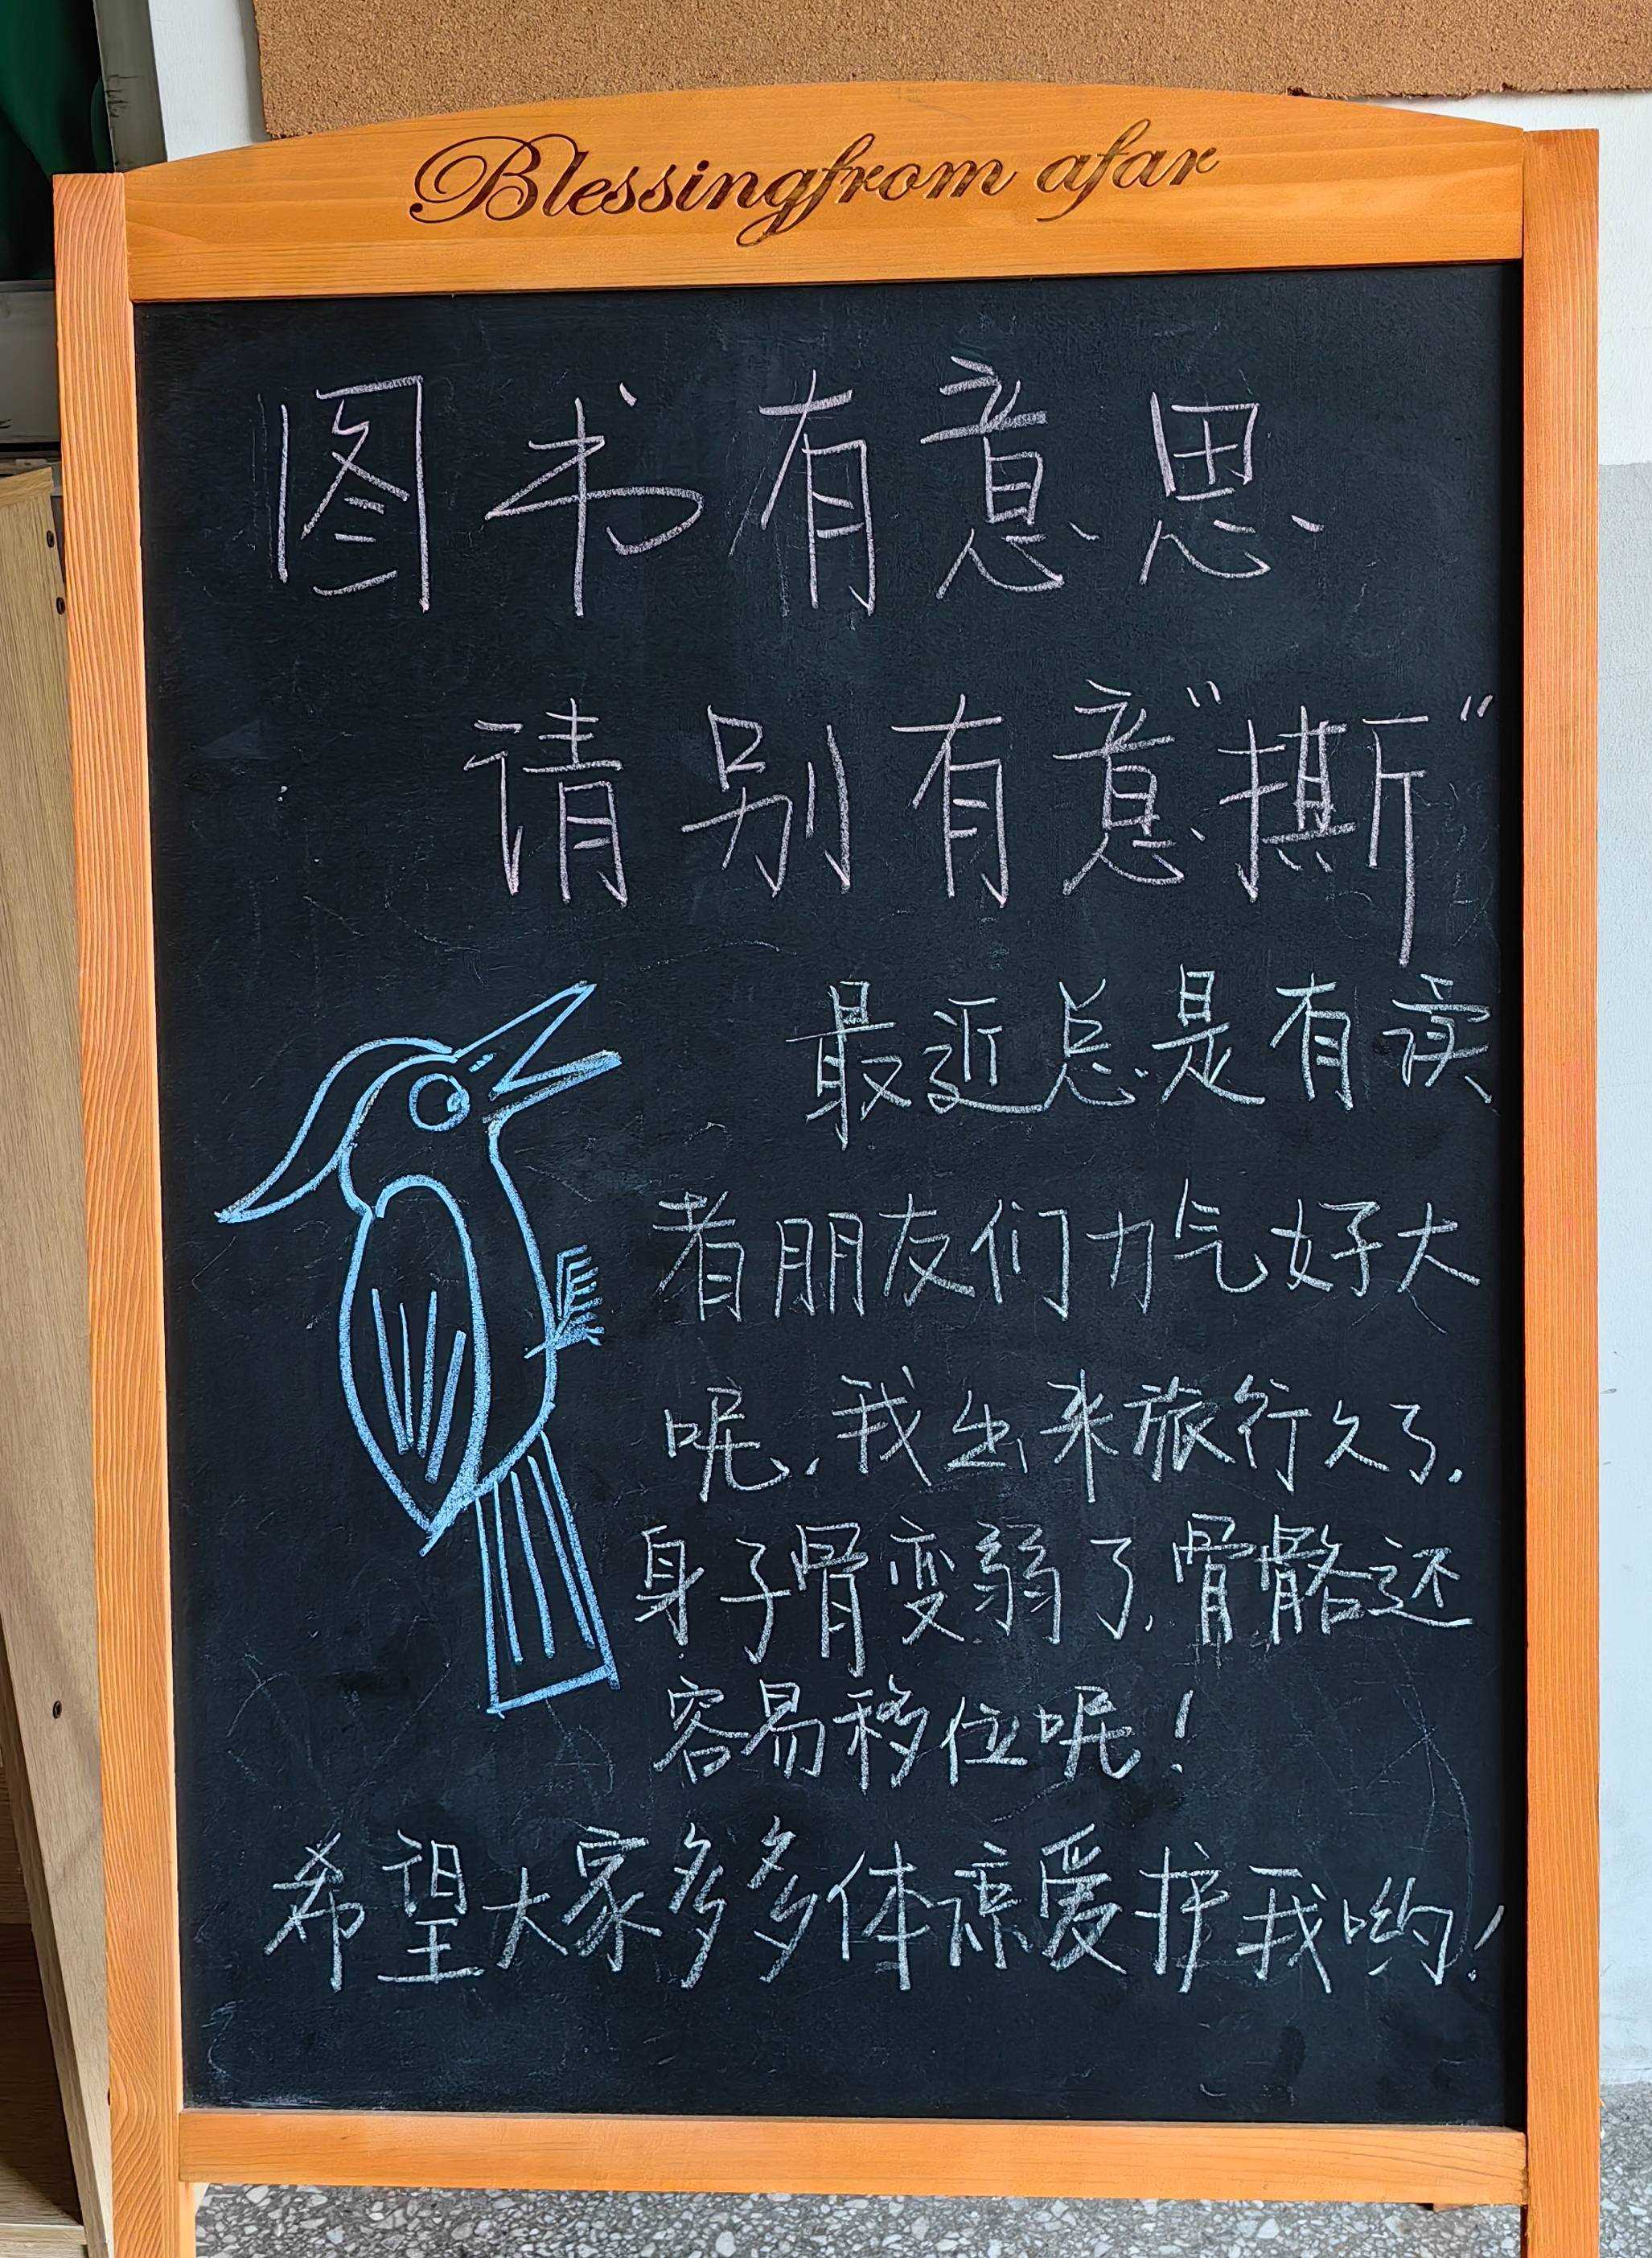 Blessingfrom afar
图书有意思
请别有意“撕”
最近总是有读
者朋友们力气好大
呢,我出来旅行久了,
身子骨变弱了,骨骼还
容易移位呢!
希望大家多多体谅爱护我哟!